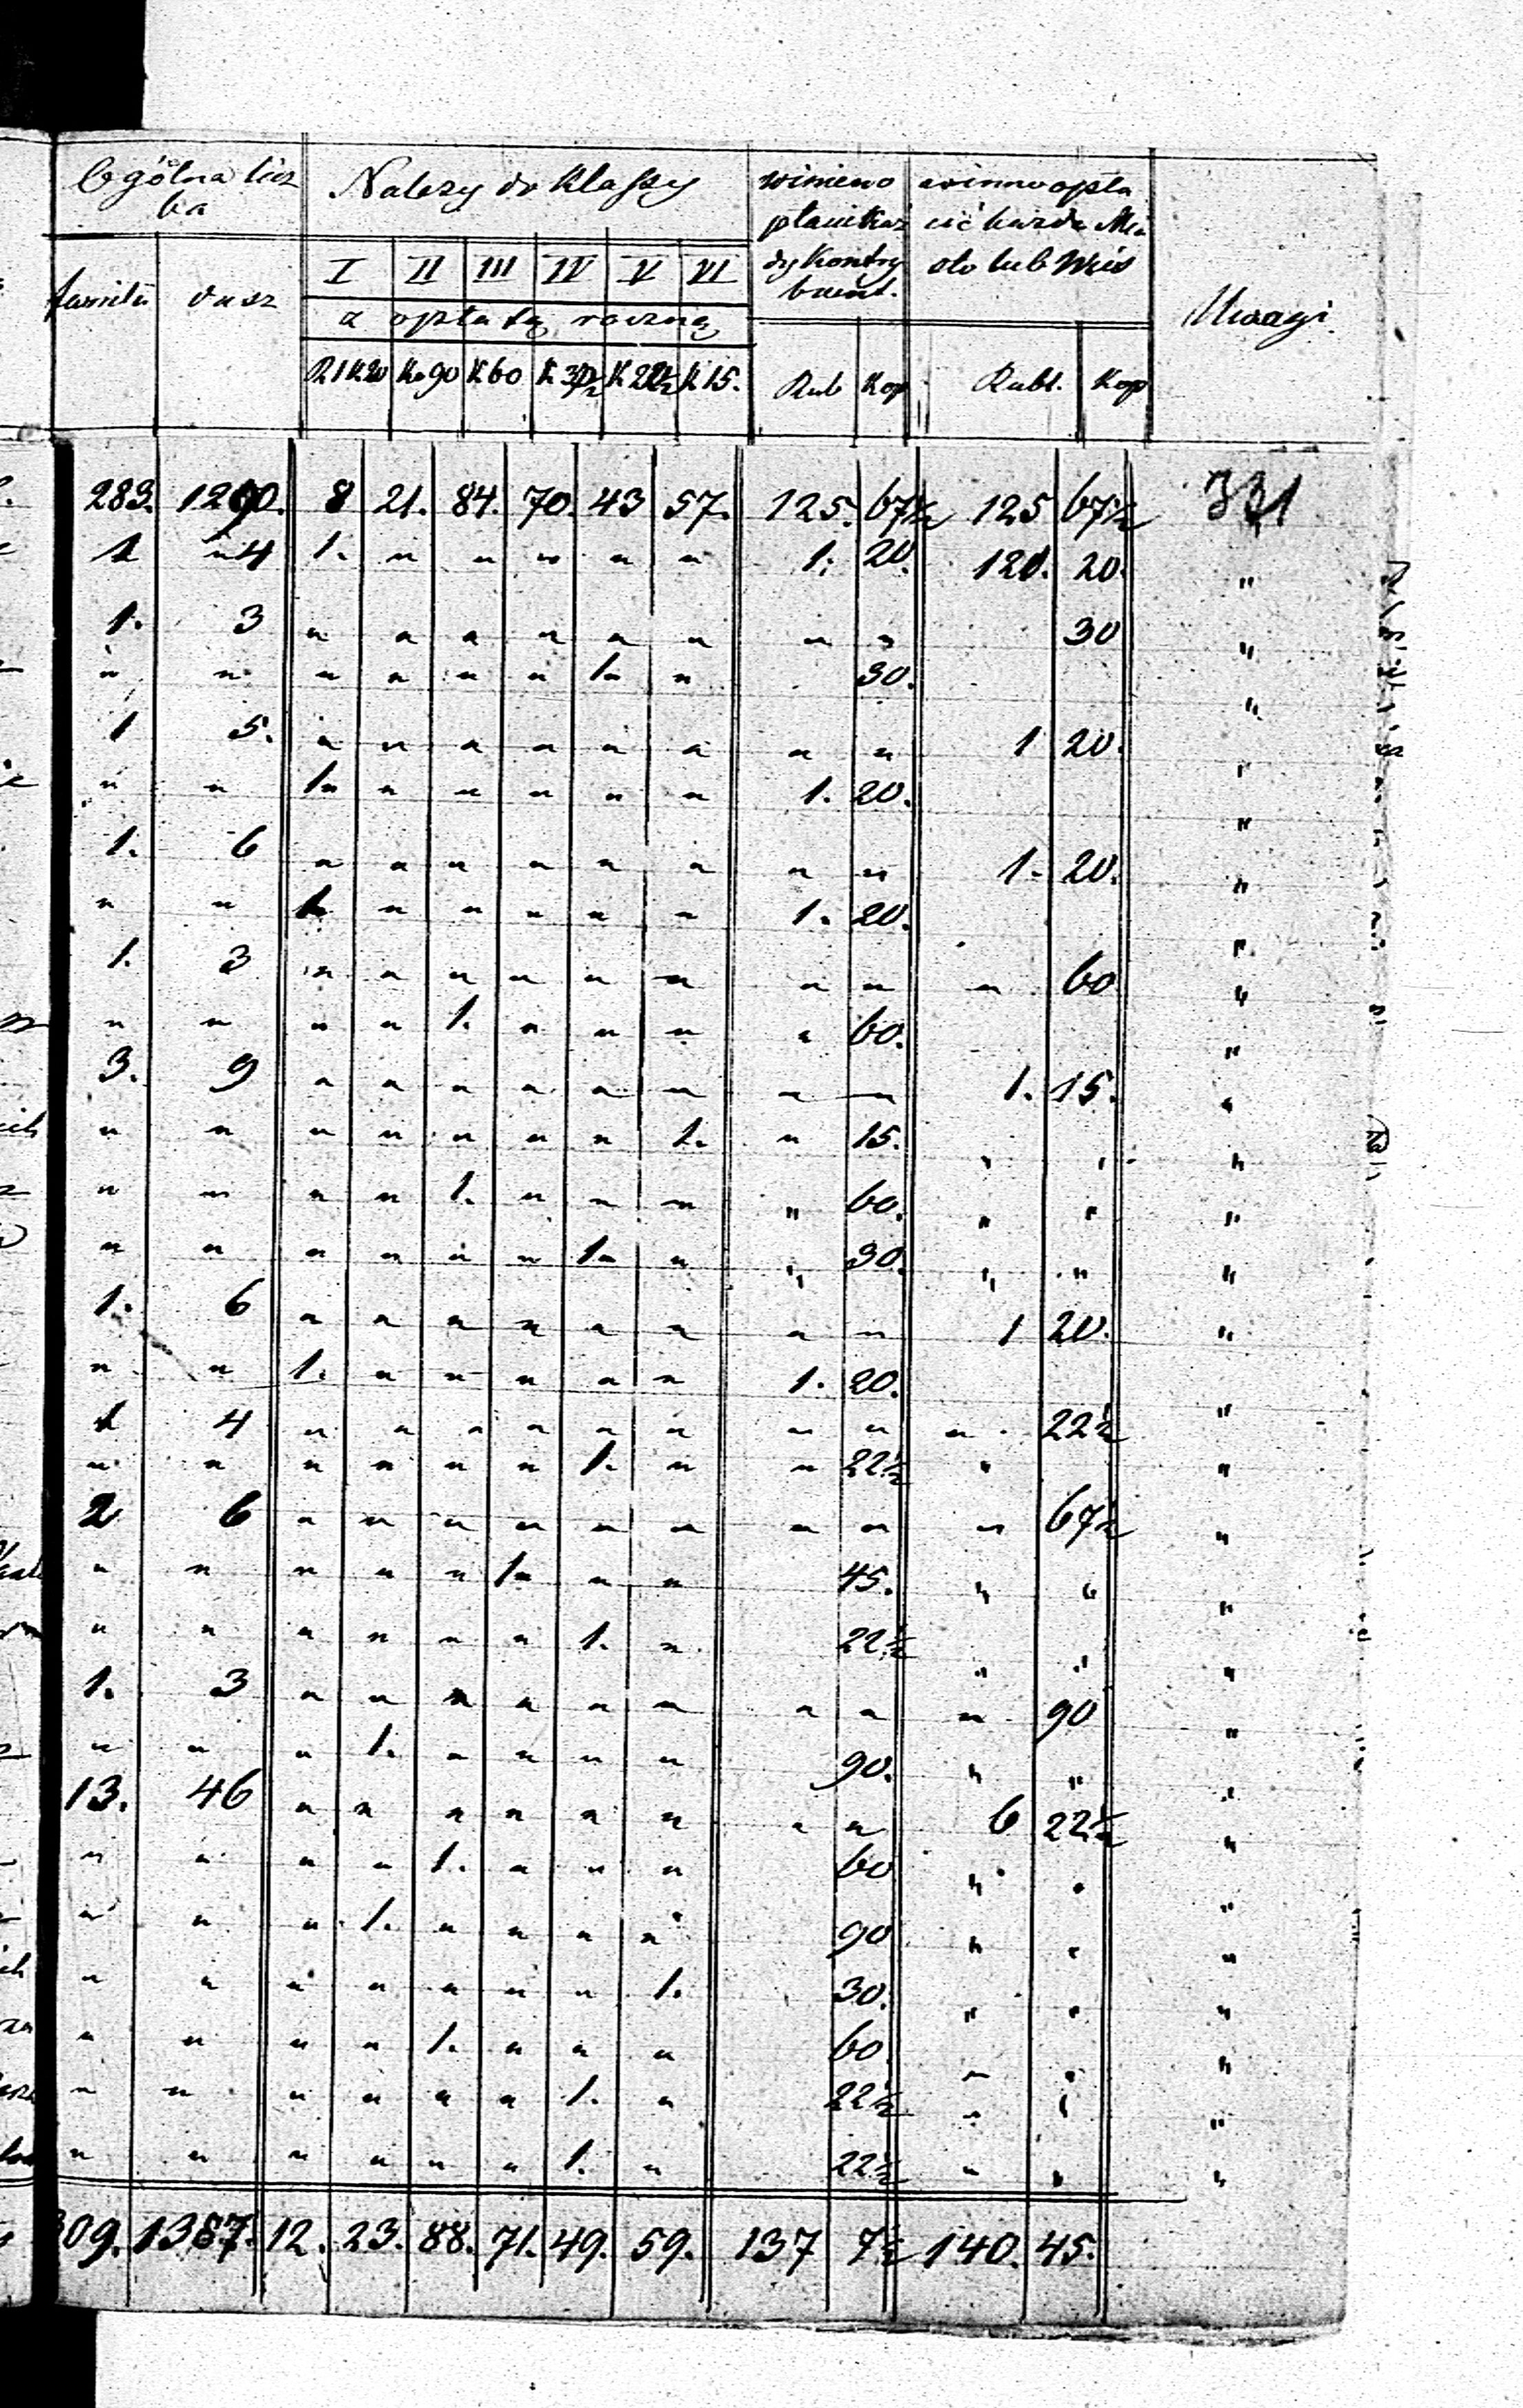 Ogólna licz Należy do Klassy winien winno opła
ba płacić każ cić każde Mia
dy Kontry sto lub Wieś
I II III IV V VI buent.
familii dusz z opłatą roczną Uwagi
R1 K20 Ko 90 K 60 K K 22½ K 15. Rub Kop Rubl. Kop
283. 1290. 8 21. 84. 70. 43 57. 125. 67½ 125 67½ 331
1 " 4 1. " " " " " 1. 20. 120. 20. "
1. 3 " " " " " " " " 30 "
" " " " " " 1. " 30. "
1 5. " " " " " " " " 1 20. "
" " 1. " " " " " 1. 20. "
1. 6 " " " " " " " " 1. 20. "
" " 1. " " " " " 1. 20. "
1. 3 " " " " " " " " " 60 "
" " " " 1. " " " " 60. "
3. 9 " " " " " " " " 1. 15. "
" " " " " " " 1. " 15. " " "
" " " " 1. " " " " 60. " " "
" " " " " " 1. " " 30. " " "
1. 6 " " " " " " " " 1 20. "
" " 1. " " " " " 1. 20. "
1 4 " " " " " " " " " 22½
" " " " " " 1. " " 22½ " "
2 6 " " " " " " " " " 67½ "
" " " " " 1. " " 45. " " "
" " " " " " 1. " 22½ " " "
1. 3 " " " " " " " " " 90 "
" " " 1. " " " " 90. " " "
13. 46 " " " " " " " " 6 22½ "
" " " " 1. " " " 60 " " "
" " " 1. " " " " 90 " " "
" " " " " " " 1. 30. " " "
" " " " 1. " " " 60. " " "
" " " " " " 1. " 22½ " " "
" " " " " " 1. " 22½ " " "
309. 1387. 12. 23. 88. 71. 49. 59. 137 7½ 140. 45.